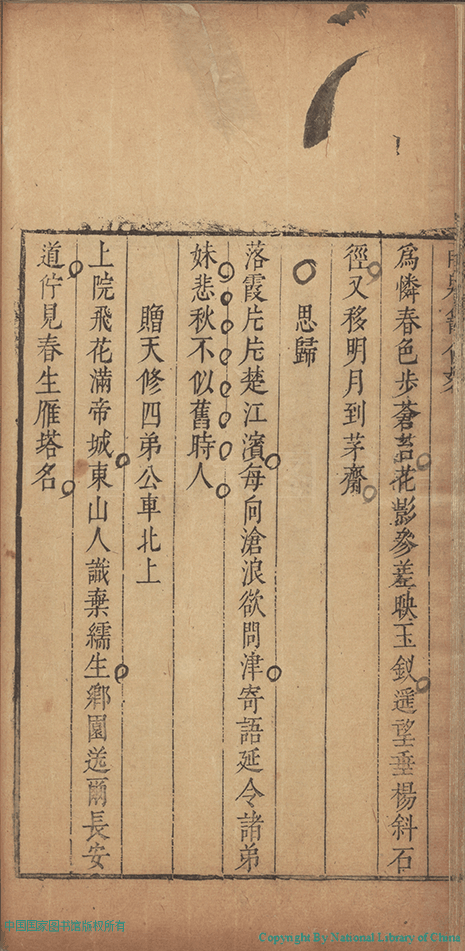 爲憐春色步蒼苔花影參差映玉釵遥望垂楊斜石
徑又移明月到茅齋
思歸
落霞片片楚江濱每向滄浪欲問津寄語延令諸弟
妹悲秋不似舊時人
贈天修四弟公車北上
上院飛花滿帝城東山人識棄繻生鄉園送爾長安
道佇見春生雁塔名
中国国家图书馆版权所有
Copyright By National Library of China